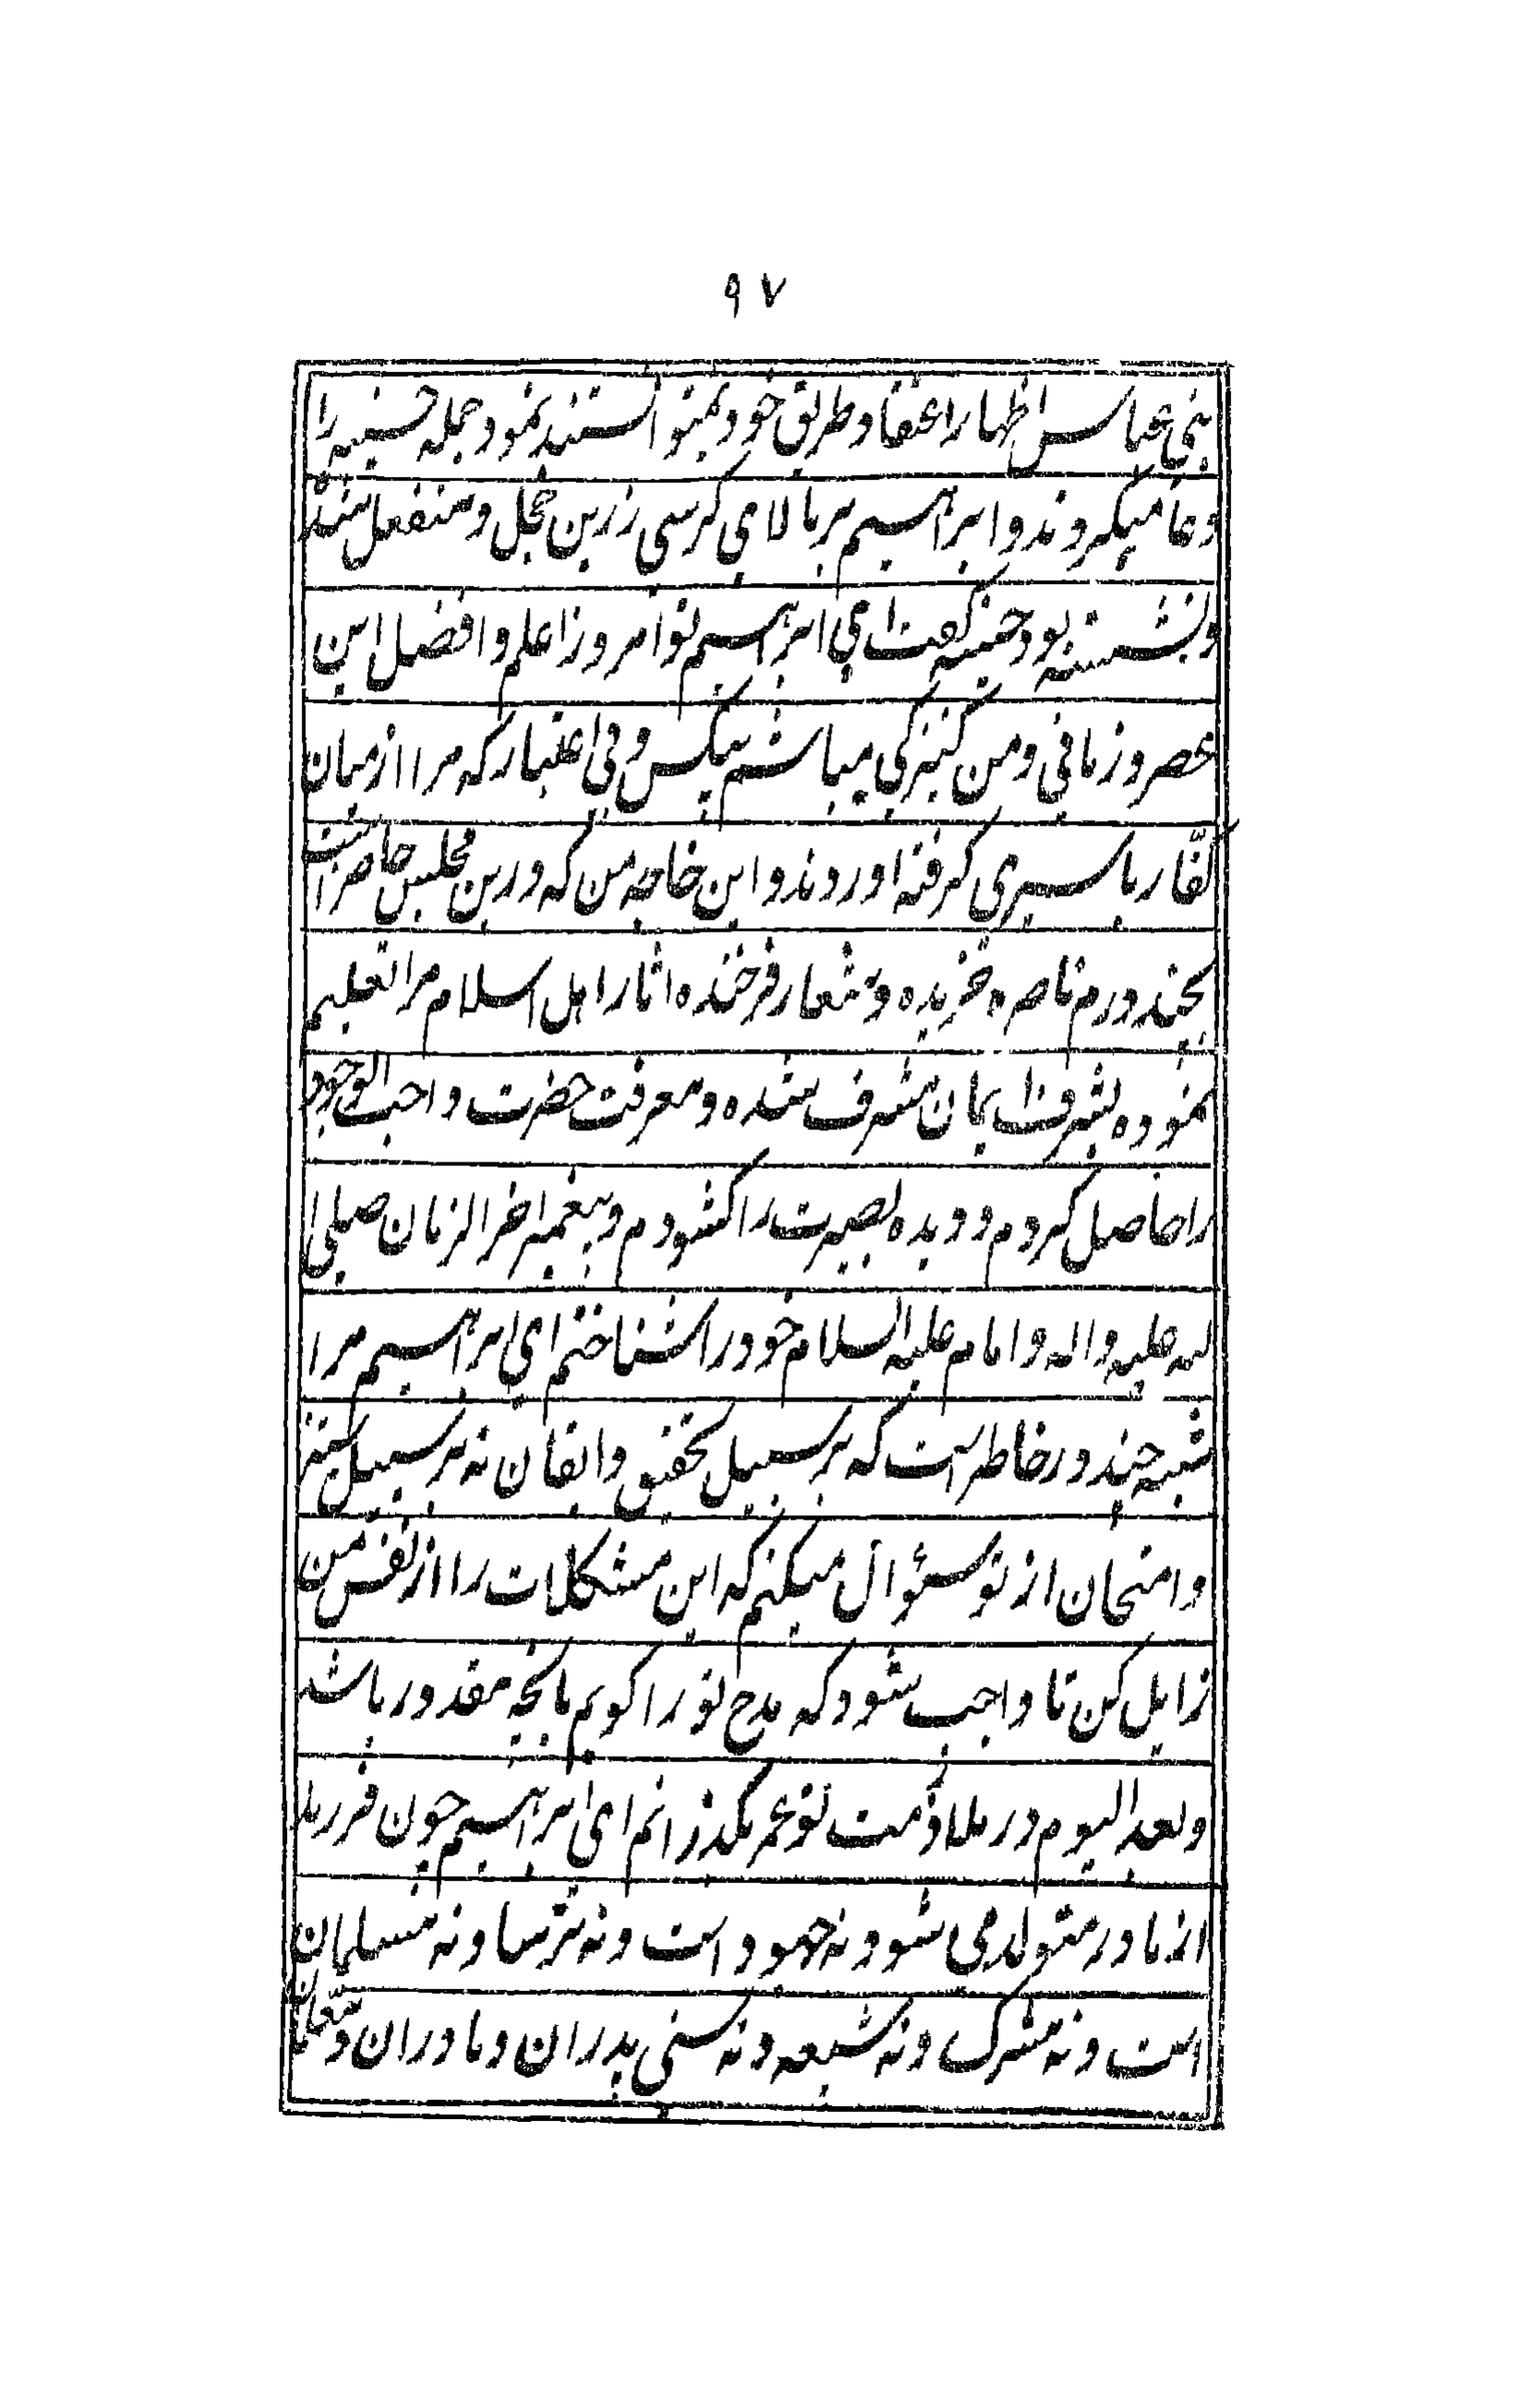 ۹۷
بنی عباس اظهار اعتقاد طریق خود نمیتوانستند نمود جمله حسنیه را
دعا میکردند و ابراهیم بر بالای کرسی زرین خجل و منفعل شده
و نشسته بود حسنیه گفت ای ابراهیم تو امروز اعلم و افضل این
عصر و زمانی و من کنیزکی میباشم بیکس و بی اعتبار که مرا از میان
کفّار باسیری گرفته اوردند و این خاجه من که درین مجلس حاضر است
بچند درم ناصره خریده و شعار فرخنده اثار اهل اسلام مرا تعلیم
نموده بشرف ایمان مشرف شده و معرفت حضرت واجب الوجود
را حاصل کردم و دیده بصیرت را کشودم و پیغمبر اخر الزمان صلی ا
لله علیه واله و امام علیه السلام خود را شناختم ای ابراهیم مرا
شبه چند در خاطر است که بر سبیل تحقیق و ایقان نه بر سبیل
و امتحان از تو سؤال میکنم که این مشکلات را از نفس من
زایل کن تا واجب شود که مدح تو را کویم بانچه مقدور باشد
و بعد الیوم در ملازمت تو عمر بگذرانم ای ابراهیم چون فرزند
از مادر متولد می شود نه جهود است و نه ترسا و نه مسلمان
است و نه مشرک و نه شیعه و نه سنی پدران و مادران و معلمان